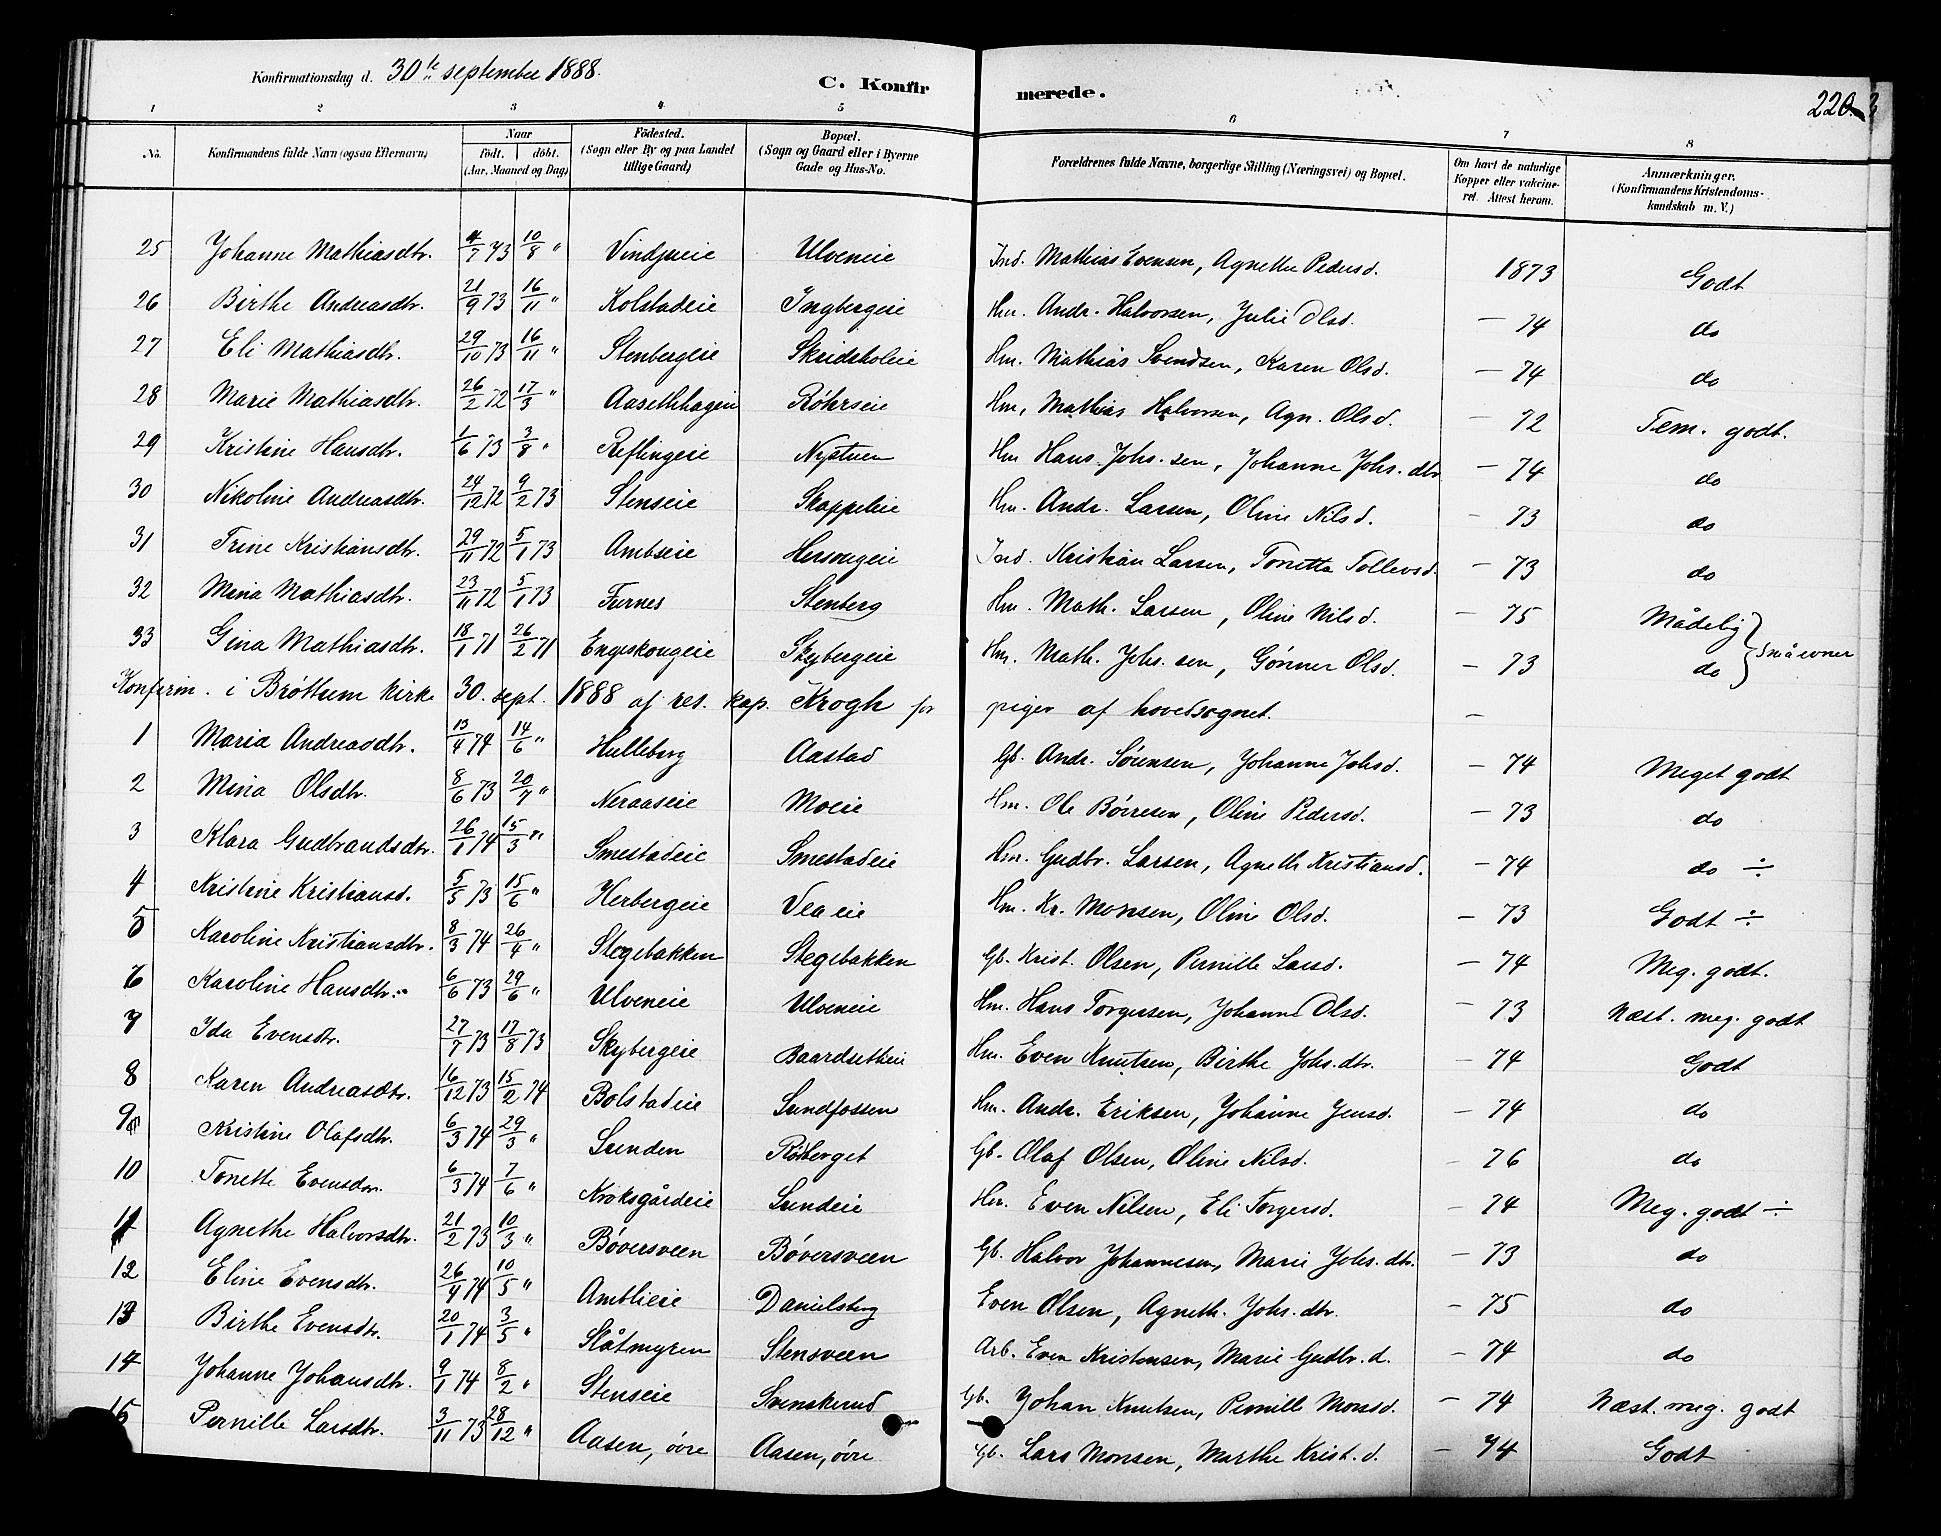 Konfirmationsdag d. 30te september 1888.
C. Konfirmerede.
220
1 2 3 4 5 6 7 8
No. Konfirmandens fulde Navn (ogsaa Efternavn) Naar födt. döbt. (Aar, Maaned og Dag) Födested. (Sogn eller By og paa Landet tillige Gaard) Bopæl. (Sogn og Gaard eller i Byerne Gade og Hus-No. Forældrenes fulde Navne, borgerlige Stilling (Næringsvei) og Bopæl. Om havt de naturlige Kopper eller vakcineret. Attest herom. Anmærkninger. (Konfirmandens Kristendomskundskab m. V.)
25 Johanne Mathiasdtr. 4/7 73 10/8 " Vindjueie Ulveneie Ind. Mathias Evensen, Agnethe Pedersd. 1873 Godt
26 Birthe Andreasdtr. 21/9 73 16/11 " Kolstadeie Ingbergeie Hm. Andr. Halvorsen, Julie Olsd. — 74 do
27 Eli Mathiasdtr. 29/10 73 16/11 " Stenbergeie Skridsholeie Hm. Mathias Svendsen, Karen Olsd. — 74 do
28 Marie Mathiasdtr. 26/2 72 17/3 " Aasethhagen Röhrseie Hm, Mathias Halvorsen, Agn. Olsd. — 72 Tem. godt.
29 Kristine Hansdtr. 1/6 73 3/8 " Reflingeie Nystuen Hm Hans Johs.sen, Johanne Johs.dtr — 74 do
30 Nikoline Andreasdtr. 24/12 72 9/2 73 Stenseie Skappeleie Hm. Andr. Larsen, Oline Nilsd. — 73 do
31 Trine Kristiansdtr. 29/11 72 5/1 73 Ambseie Hersougeie Ind. Kristian Larsen, Tonetta Tollevsd. — 73 do
32 Mina Mathiasdtr. 23/11 72 5/1 73 Furnes Stenberg Hm. Math. Larsen, Oline Nilsd. — 75 Mådelig } små evner
33 Gina Mathiasdtr. 18/1 71 26/2 71 Engeskougeie Skybergeie Hm. Math. Johs.sen, Gönner Olsd. — 73 do
Konfirm. i Bröttum kirke 30. sept. 1888 af res. kap. Krogh for piger af hovedsognet. —
1 Maria Andreasdtr. 13/4 74 14/6 " Hulleberg Aastad Gb. Andr. Sörensen, Johanne Johsd. — 74 Meget godt
2 Mina Olsdtr. 8/6 73 20/7 " Neraaseie Moeie Hm. Ole Börresen, Oline Pedersd. — 73 do
3 Klara Gudbrandsdtr. 26/1 74 15/3 " Smestadeie Smestadeie Hm. Gudbr. Larsen, Agneth Kristiansd. — 74 do ÷
4 Kristine Kristiansd. 5/5 73 15/6 " Herbergeie Veaeie Hm. Kr. Monsen, Oline Olsd. — 73 Godt ÷
5 Karoline Kristiansdtr. 8/3 74 26/4 " Stegebakken Stegebakken Gb. Krist. Olsen, Pernille Larsd. — 74 Meg. godt.
6 Karoline Hansdtr. 6/6 73 29/6 " Ulveneie Ulveneie Hm. Hans Torgersen, Johanne Olsd. — 73 Næst. meg. godt
7 Ida Evensdtr. 27/7 73 17/8 73 Skybergeie Baardsetheie Hm. Even Knutsen, Birthe Johs.dtr. — 74 Godt
8 Karen Andreasdtr. 16/12 73 15/2 74 Bolstadeie Sundfossen Hm. Andr. Eriksen, Johanne Jensd. — 74 do
9 Kristine Olafsdtr. 6/3 74 29/3 " Sunden Röberget Gb. Olaf Olsen, Oline Nilsd. — 76 do
10 Tonette Evensdtr. 6/3 74 7/6 " Kroksgårdeie Sundeie Hm. Even Nilsen, Eli Torgersd. — 74 Meg. godt ÷
11 Agnethe Halvorsdtr. 21/2 73 10/3 " Böversveen Böversveen Gb. Halvor Johannesen, Marie Johs.dtr. — 73 do
12 Eline Evensdtr. 26/4 74 10/5 " Amblieie Danielsberg Even Olsen, Agneth. Johs.dtr. — 75 do
13 Birthe Evensdtr. 20/1 74 3/5 " Slåtmyren Stensveen Arb. Even Kristensen, Marie Gudbr.d. — 74 do
14 Johanne Johansdtr. 9/1 74 8/2 " Stenseie Svenskerud Gb. Johan Knutsen, Pernille Monsd. — 74 Næst. meg. godt
15 Pernille Larsdtr. 3/11 73 28/12 " Aasen, övre Aasen, övre Gb. Lars Monsen, Marthe Krist.d. — 74 Godt